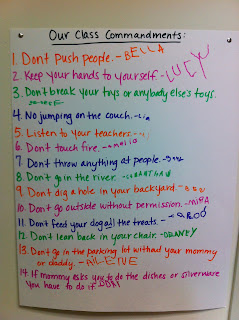 Our Class Commandments:
1. Don't push people. - BELLA
2. Keep your hands to yourself. - LUCY
3. Don't break your toys or anybody else's toys.
4. No jumping on the couch. - Lia
5. Listen to your teachers.
6. Dont touch fire.
7. Don't throw anything at people.
8. Don't go in the river.
9. Don't dig a hole in your backyard.
10. Don't go outside without permission. - MIRA
11. Don't feed your dog all the treats.
12. Dont lean back in your chair. - DELANEY
13. Don't go in the parking lot without your mommy
or daddy.
14. If mommy asks you to do the dishes or silverware
you have to do it.